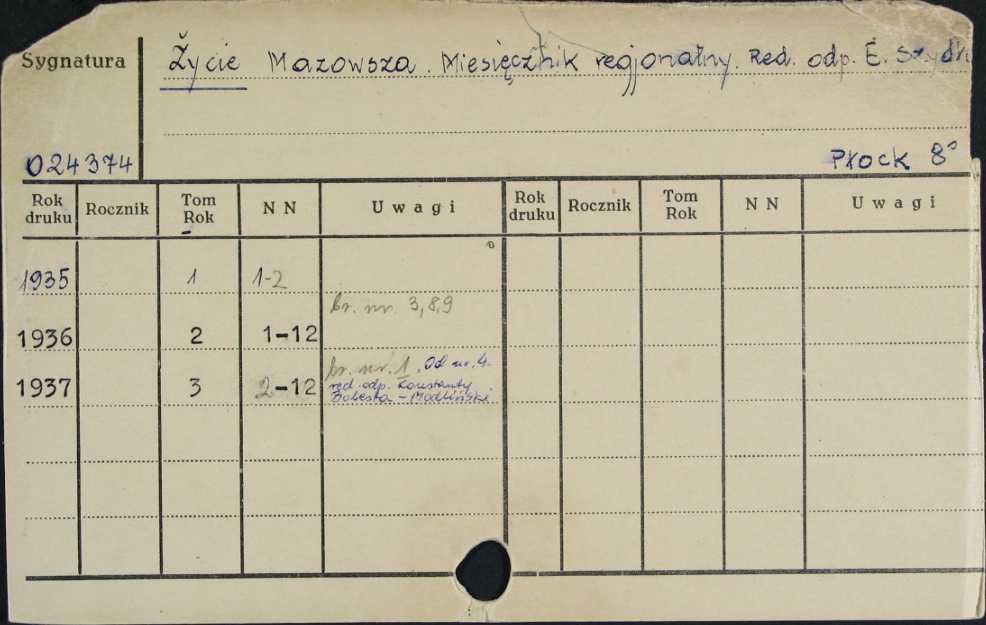 Sygnatura
Życie Mazowsza. Miesięcznik regjonalny. Red. odp. E.
024374
Płock 8°
Rok druku Rocznik Tom Rok N N Uwagi Rok druku Rocznik Tom Rok N N Uwagi
1935 1 1-2
br. nr. 3,8,9
1936 2 1-12
br. nr. 1. Od nr. 4.
1937 3 2-12 red. odp. Konstanty
Bolesta-Modliński